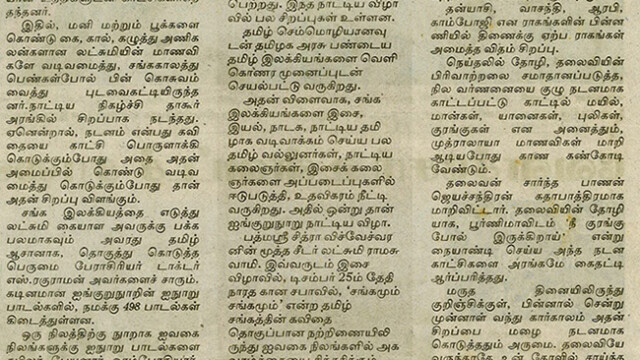 தந்தனர்.
இதில், மணி மற்றும் பூக்களை
கொண்டு கை, கால், கழுத்து அணிக
லன்களான லட்சுமியின் மாணவி
களே வடிவமைத்து, சங்ககாலத்து
பெண்கள்போல் பின் கொசுவம்
வைத்து புடவைகட்டியிருந்த
னர்.நாட்டிய நிகழ்ச்சி தாகூர்
அரங்கில் சிறப்பாக நடந்தது.
ஏனென்றால், நடனம் என்பது கவி
தையை காட்சி பொருளாக்கி
கொடுக்கும்போது அதை அதன்
அமைப்பில் கொண்டு வடிவ
மைத்து கொடுக்கும்போது தான்
அதன் சிறப்பு விளங்கும்.
சங்க இலக்கியத்தை எடுத்து
லட்சுமி கையாள அவருக்கு பக்க
பலமாகவும் அவரது தமிழ்
ஆசானாக, தொகுத்து கொடுத்த
பெருமை பேராசிரியர் டாக்டர்
எஸ்.ரகுராமன் அவர்களைச் சாரும்.
கடினமான ஐங்குறுநூறில் ஐநூறு
பாடல்களில், நமக்கு 498 பாடல்கள்
கிடைத்துள்ளன.
ஒரு நிலத்திற்கு நூறாக ஐவகை
நிலங்களுக்கு ஐநூறு பாடல்களை
பெற்றது. இந்த நாட்டிய விழா
வில் பல சிறப்புகள் உள்ளன.
தமிழ் செம்மொழியானவு
டன் தமிழக அரசு பண்டைய
தமிழ் இலக்கியங்களை வெளி
கொணர முனைப்புடன்
செயல்பட்டு வருகிறது.
அதன் விளைவாக, சங்க
இலக்கியங்களை இசை,
இயல், நாடக, நாட்டிய தமி
ழாக வடிவாக்கம் செய்ய பல
தமிழ் வல்லுனர்கள், நாட்டிய
கலைஞர்கள், இசைக் கலை
ஞர்களை அப்படைப்புகளில்
ஈடுபடுத்தி, உதவிகரம் நீட்டி
வருகிறது. அதில் ஒன்று தான்
ஐங்குறுநூறு நாட்டிய விழா.
பத்மஸ்ரீ சித்ரா விஸ்வேச்வர
னின் மூத்த சீடர் லட்சுமி ராமசு
வாமி. இவ்வருடம் இசை
விழாவில், டிசம்பர் 25ம் தேதி
நாரத கான சபாவில், 'சங்கமும்
சங்கமும்' என்ற தமிழ்
சங்கத்தின் கவிதை
தொகுப்பான நற்றிணையிலி
ருந்து ஐவகை நிலங்களில் அக
தன்யாசி, வாசந்தி, ஆரபி,
காம்போஜி என ராகங்களின் பின்ன
ணியில் திணைக்கு ஏற்ப ராகங்கள்
அமைத்த விதம் சிறப்பு.
நெய்தலில் தோழி, தலைவியின்
பிரிவாற்றலை சமாதானப்படுத்த,
நில வர்ணனையை குழு நடனமாக
காட்டப்பட்டு காட்டில் மயில்,
மான்கள், யானைகள், புலிகள்,
குரங்குகள் என அனைத்தும்,
முத்ராலாயா மாணவிகள் மாறி
ஆடியபோது காண கண்கோடி
வேண்டும்.
தலைவன் சார்ந்த பாணன்
ஜெயச்சந்திரன் கதாபாத்திரமாக
மாறிவிட்டார். தலைவியின் தோழி
யாக, பூர்ணிமாவிடம் 'நீ குரங்கு
போல் இருக்கிறாய்' என்று
நையாண்டி செய்ய அந்த நடன
காட்சிகளை அரங்கமே கைதட்டி
ஆர்ப்பரித்தது.
மருத தினையிலிருந்து
குறிஞ்சிக்குள், பின்னால் சென்று
முன்னாள் வந்து கார்காலம் அதன்
சிறப்பை மழை நடனமாக
கொடுத்ததும் அருமை. தலைவியே